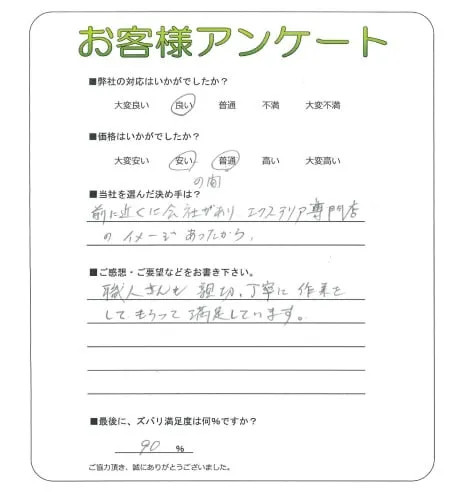 お客様アンケート
■弊社の対応はいかがでしたか？
大変良い 良い 普通 不満 大変不満
■価格はいかがでしたか？
大変安い 安い 普通 高い 大変高い
の間
■当社を選んだ決め手は？
前に近くに会社があり エクステリア専門店
の イメージ あったから。
■ご感想・ご要望などをお書き下さい。
職人さんも 親切、丁寧に 作業を
して もらって 満足しています。
■最後に、ズバリ満足度は何％ですか？
90 ％
ご協力頂き、誠にありがとうございました。